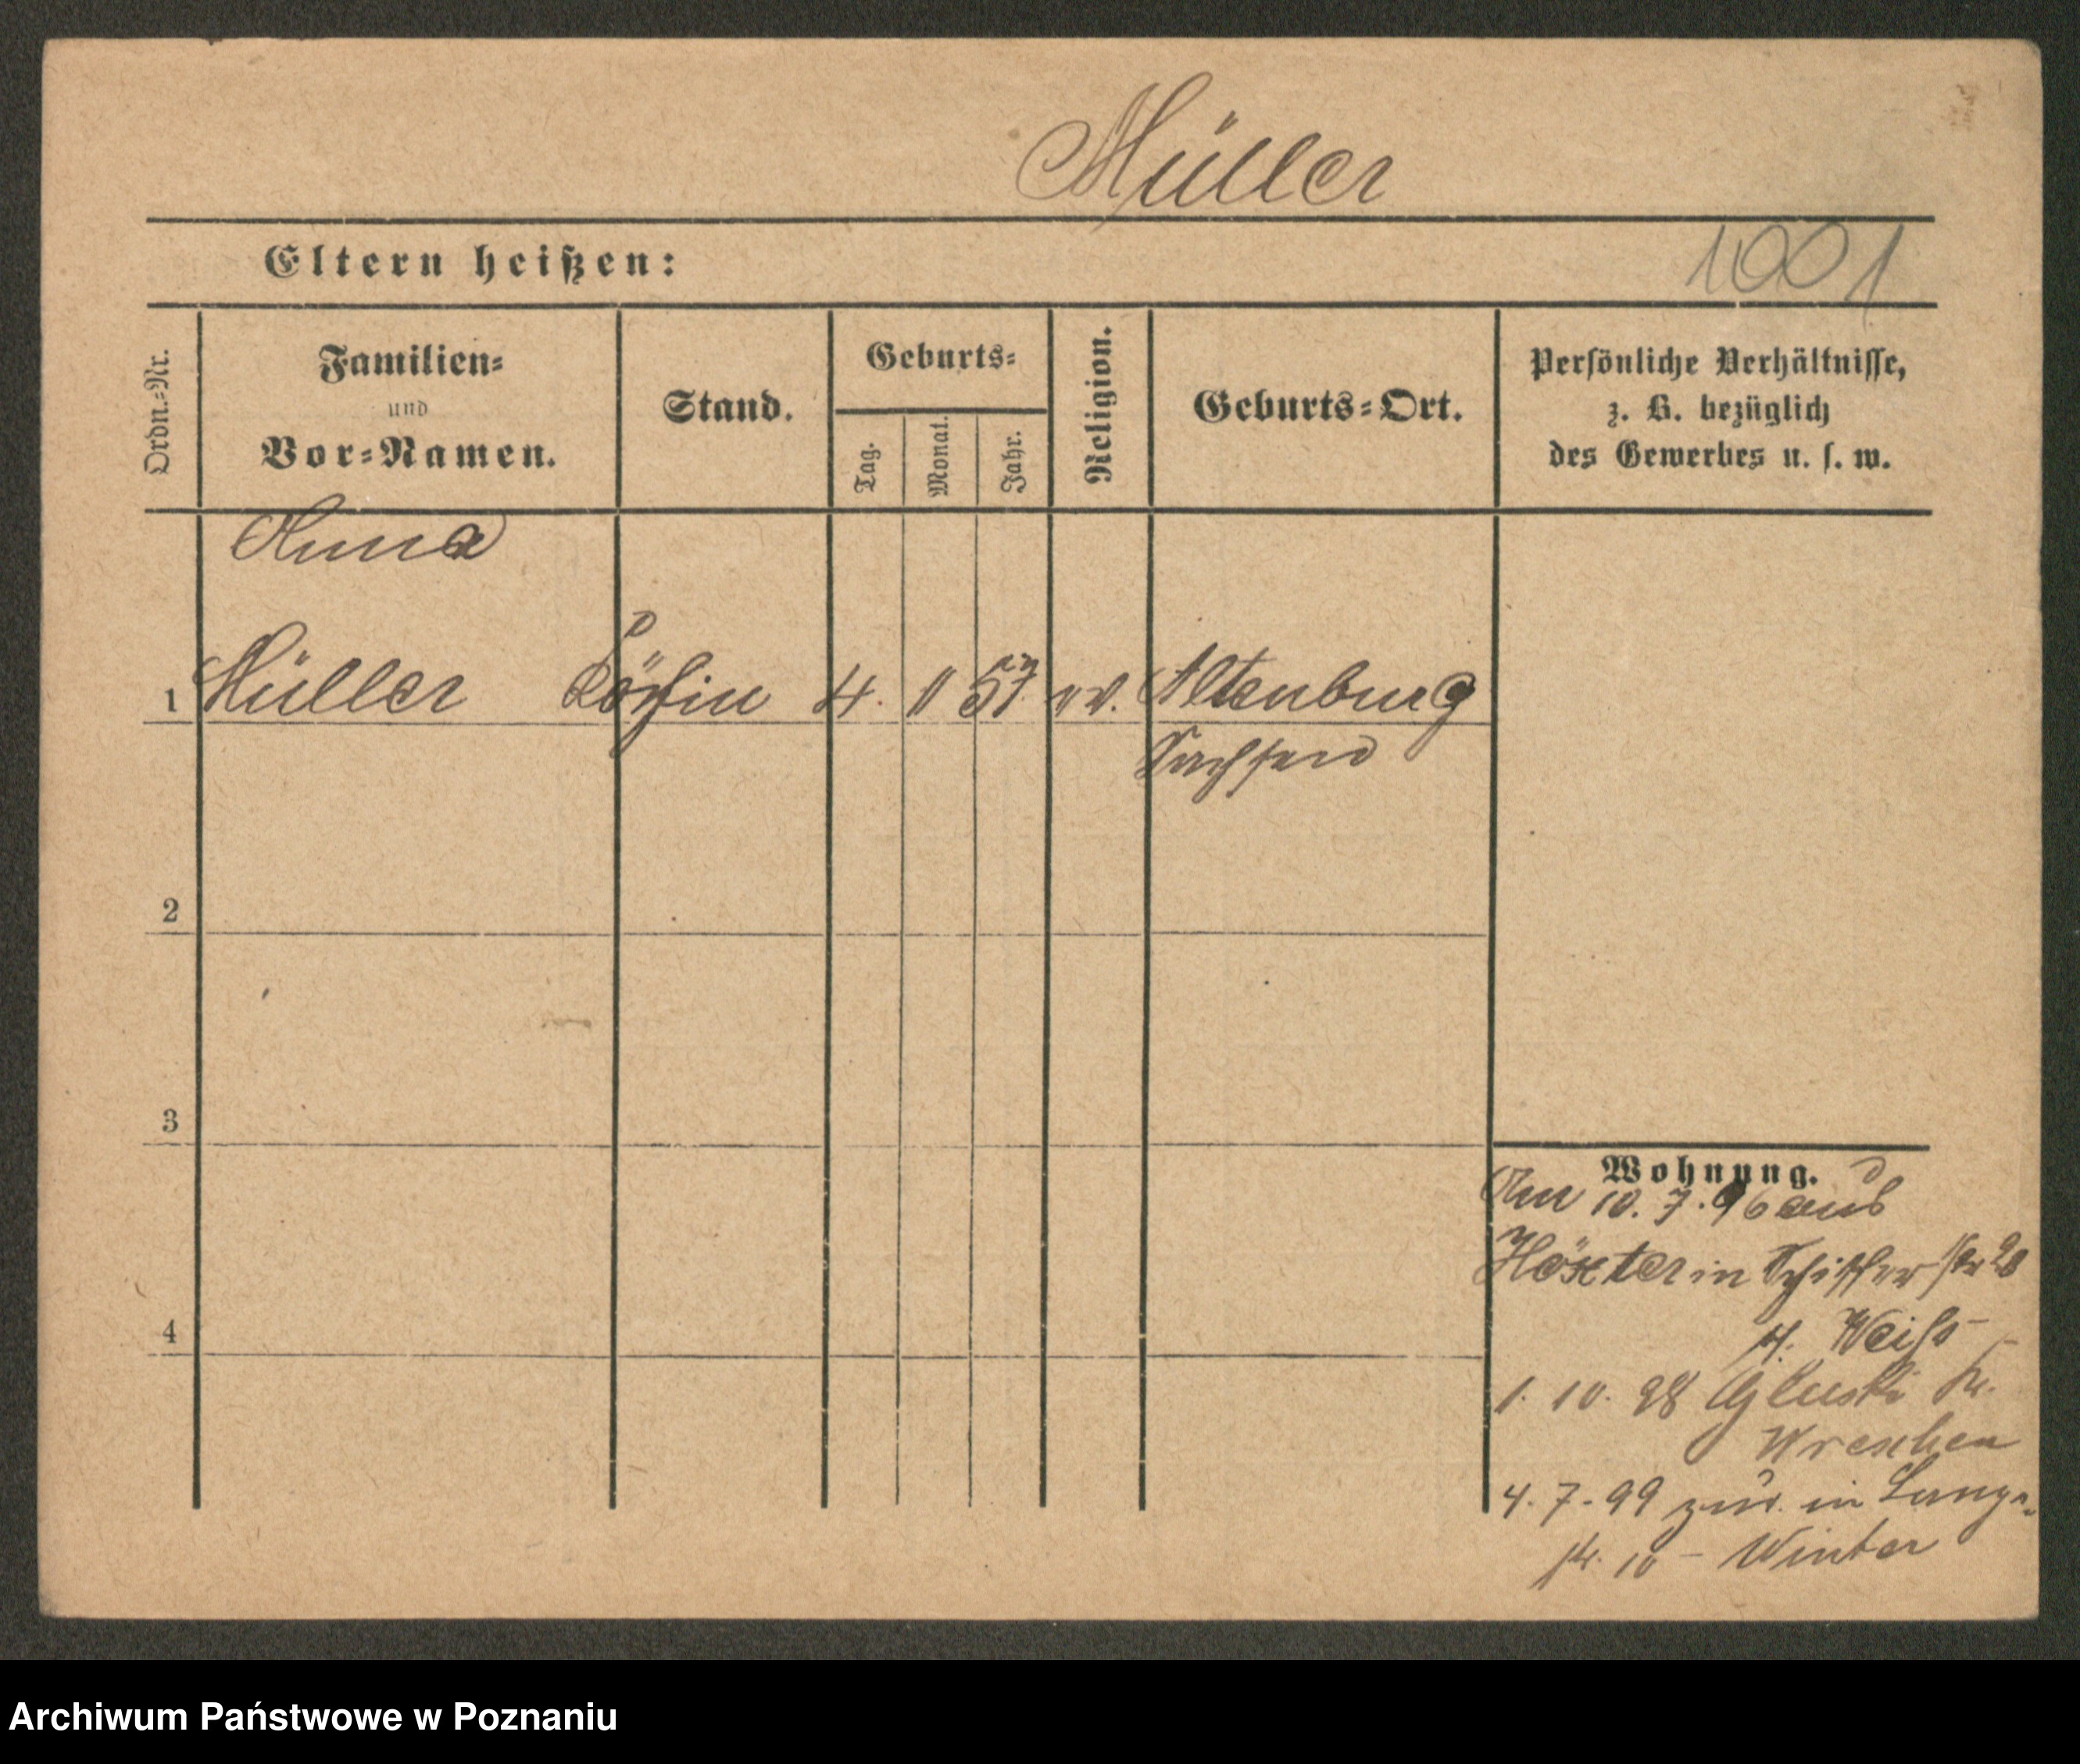 Müller
Eltern heißen:
1001
Ordn.-Nr.
Familien-
und
Vor-Namen.
Stand.
Geburts-
Tag.
Monat.
Jahr.
Religion.
Geburts-Ort.
Persönliche Verhältnisse,
z. B. bezüglich
des Gewerbes u. s. w.
Anna
1 Müller Köchin 4. 11 57 ev. Altenburg
Sachsen
2
3
4
Wohnung.
Am 10. 7. 96 aus
Höxter in Schifferstr 20
Weiss
1. 10. 98 Gluski Kr.
Wreschen
4. 7. 99 zur. in Lange-
str. 10 - Winter
Archiwum Państwowe w Poznaniu